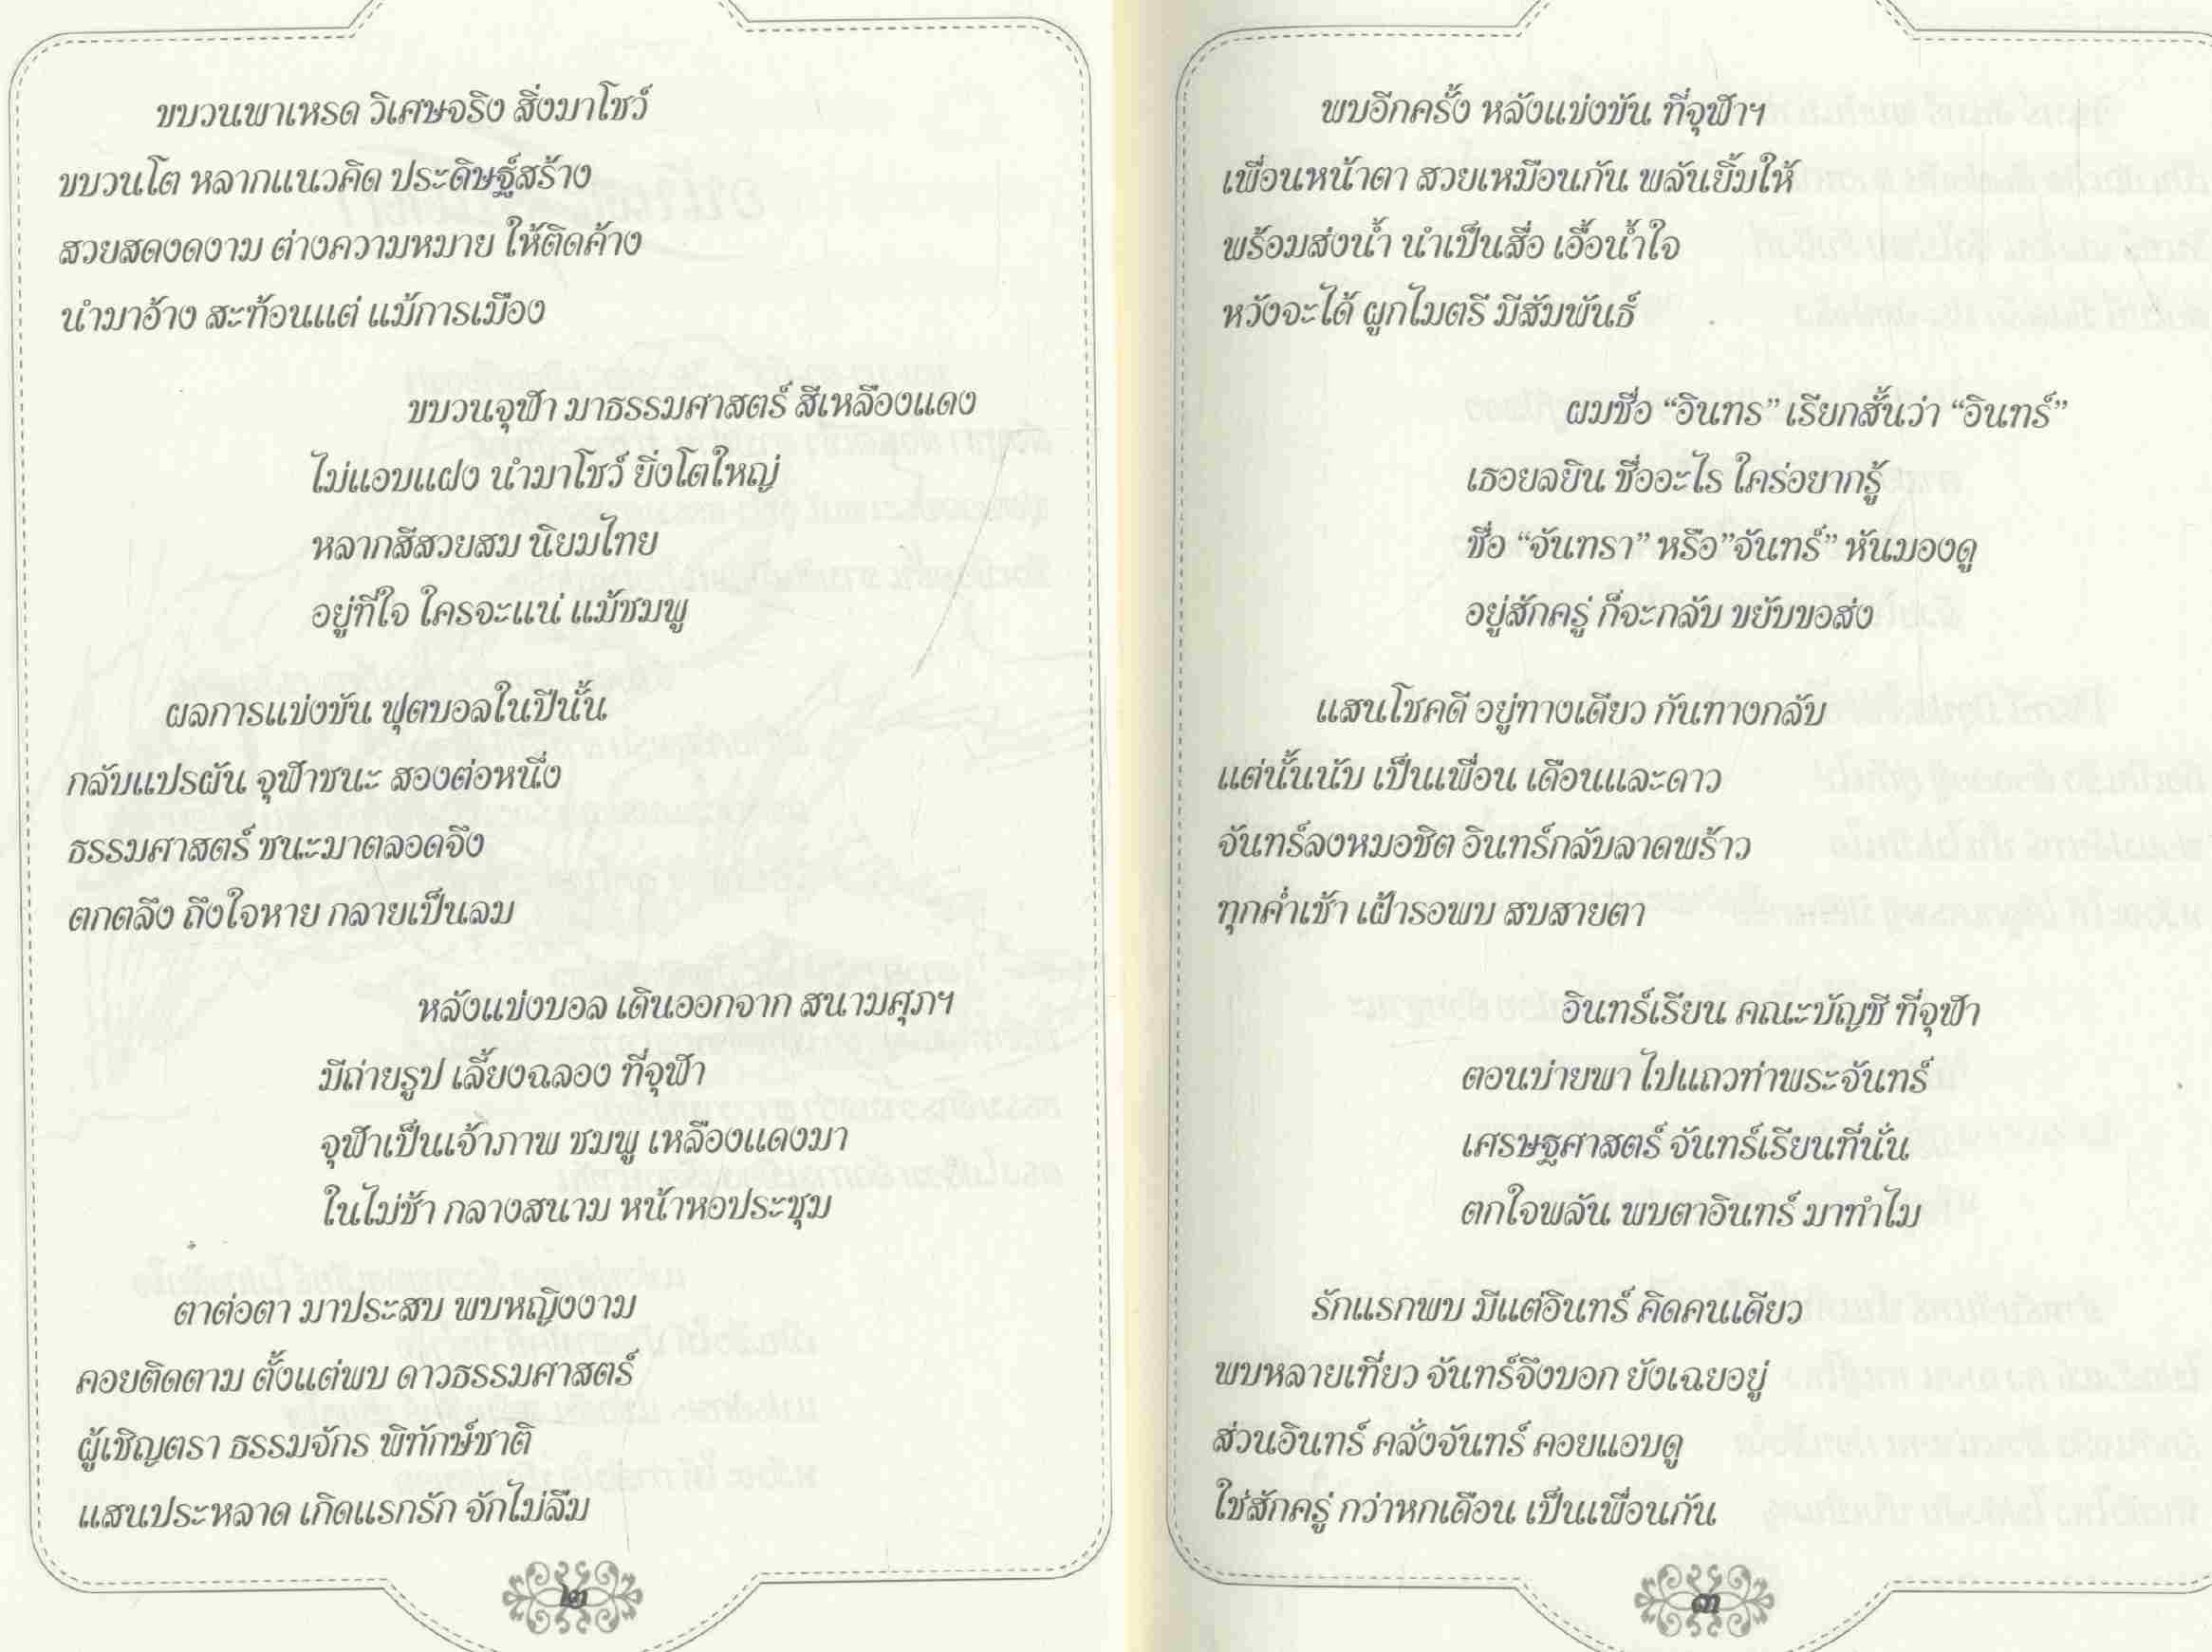 ขบวนพาเหรด วิเศษจริง สิ่งมาโชว์
ขบวนโต หลากแนวคิด ประดิษฐ์สร้าง
สวยสดงดงาม ต่างความหมาย ให้ติดค้าง
นำมาอ้าง สะท้อนแต่ แม้การเมือง
ขบวนจุฬา มาธรรมศาสตร์ สีเหลืองแดง
ไม่แอบแฝง นำมาโชว์ ยิ่งโตใหญ่
หลากสีสวยสม นิยมไทย
อยู่ที่ใจ ใครจะแน่ แม้ชมพู
ผลการแข่งขัน ฟุตบอลในปีนั้น
กลับแปรผัน จุฬาชนะ สองต่อหนึ่ง
ธรรมศาสตร์ ชนะมาตลอดจึง
ตกตลึง ถึงใจหาย กลายเป็นลม
หลังแข่งบอล เดินออกจาก สนามศุภฯ
มีถ่ายรูป เลี้ยงฉลอง ที่จุฬา
จุฬาเป็นเจ้าภาพ ชมพู เหลืองแดงมา
ในไม่ช้า กลางสนาม หน้าหอประชุม
ตาต่อตา มาประสบ พบหญิงงาม
คอยติดตาม ตั้งแต่พบ ดาวธรรมศาสตร์
ผู้เชิญตรา ธรรมจักร พิทักษ์ชาติ
แสนประหลาด เกิดแรกรัก จักไม่ลืม
๒
พบอีกครั้ง หลังแข่งขัน ที่จุฬาฯ
เพื่อนหน้าตา สวยเหมือนกัน พลันยิ้มให้
พร้อมส่งน้ำ นำเป็นสื่อ เอื้อน้ำใจ
หวังจะได้ ผูกไมตรี มีสัมพันธ์
ผมชื่อ “อินทร” เรียกสั้นว่า “อินทร์”
เธอยลยิน ชื่ออะไร ใคร่อยากรู้
ชื่อ “จันทรา” หรือ”จันทร์” หันมองดู
อยู่สักครู่ ก็จะกลับ ขยับขอส่ง
แสนโชคดี อยู่ทางเดียว กันทางกลับ
แต่นั้นนับ เป็นเพื่อน เดือนและดาว
จันทร์ลงหมอชิต อินทร์กลับลาดพร้าว
ทุกค่ำเช้า เฝ้ารอพบ สบสายตา
อินทร์เรียน คณะบัญชี ที่จุฬา
ตอนบ่ายพา ไปแถวท่าพระจันทร์
เศรษฐศาสตร์ จันทร์เรียนที่นั่น
ตกใจพลัน พบตาอินทร์ มาทำไม
รักแรกพบ มีแต่อินทร์ คิดคนเดียว
พบหลายเที่ยว จันทร์จึงบอก ยังเฉยอยู่
ส่วนอินทร์ คลั่งจันทร์ คอยแอบดู
ใช่สักครู่ กว่าหกเดือน เป็นเพื่อนกัน
๓